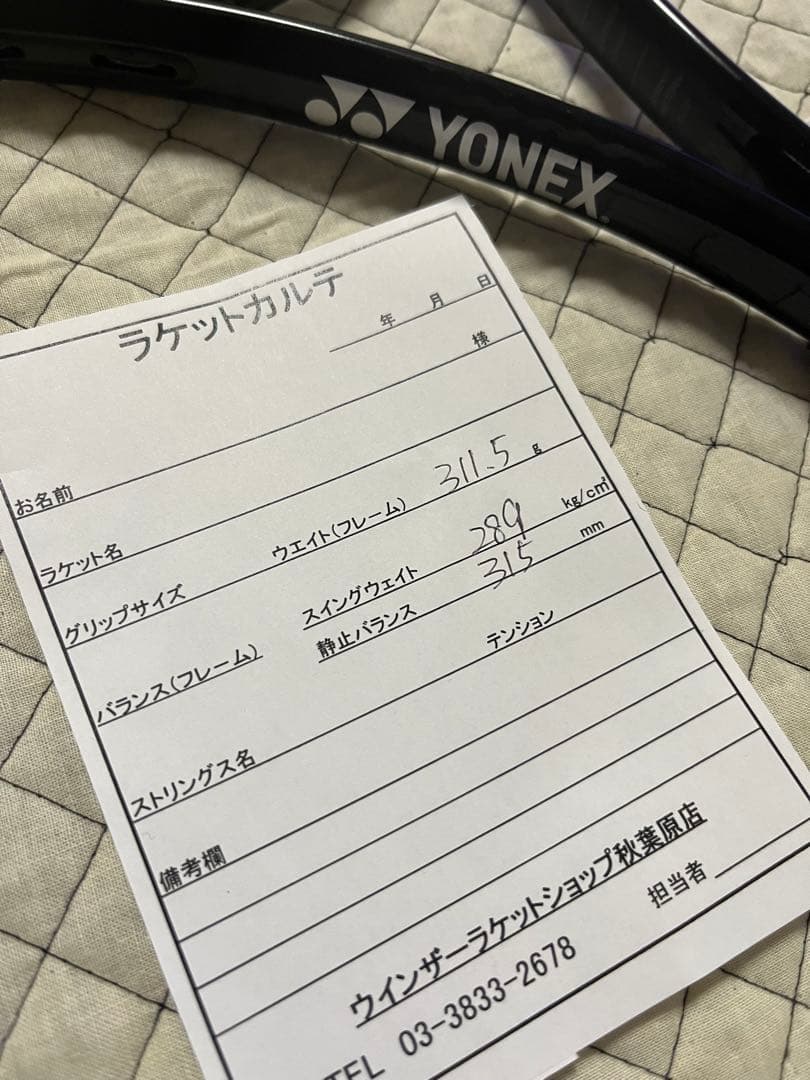 YONEX
ラケットカルテ
年 月 日
様
お名前
ラケット名
グリップサイズ ウエイト(フレーム) 311.5 g
バランス(フレーム) スイングウェイト 289 kg/c㎡
静止バランス 315 mm
ストリングス名 テンション
備考欄
ウインザーラケットショップ秋葉原店
TEL 03-3833-2678 担当者